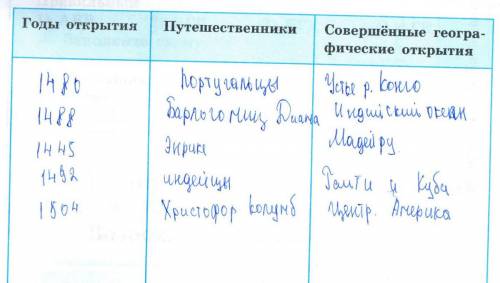 Годы открытия Путешественники Совершённые геогра-
фические открытия
1480 Португальцы Устье р. Конго
1488 Индийский океан
1445 Энрике Мадейру
1492 индейцы Гаити и Куба
1504 Христофор Колумб Центр. Америка